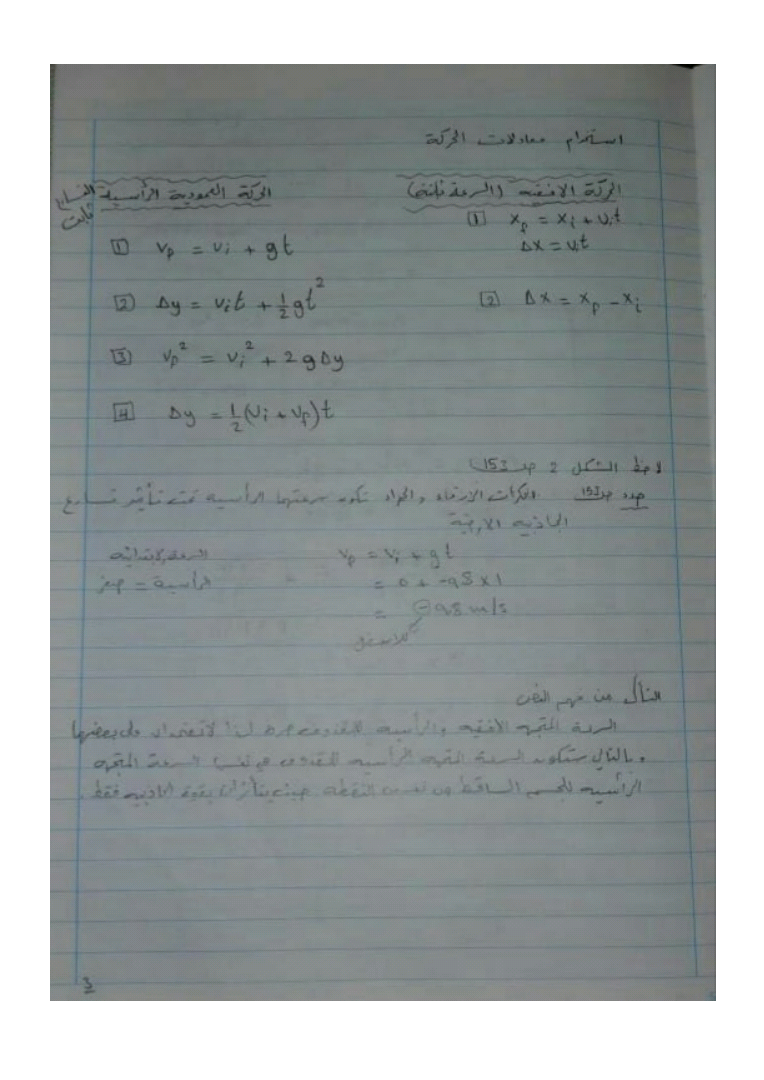 استخدام معادلات الحركة
الحركة الافقية (السرعة ثابتة)
1 x_f = x_i + v_i t
Δx = v_i t
2 Δx = x_f - x_i
الحركة العمودية الرأسية التسارع ثابت
1 v_f = v_i + gt
2 Δy = v_i t + 1/2 gt²
3 v_f² = v_i² + 2gΔy
4 Δy = 1/2 (v_i + v_f) t
لاحظ الشكل 2 صـ 153
حدد صـ 153 الكرات الزرقاء والحمراء تكون سرعتهما الرأسية تحت تأثير تسارع
الجاذبية الارضية
v_f = v_i + gt
= 0 + -9.8 × 1
= -9.8 m/s
للاسفل
السرعة الابتدائية
الرأسية = صفر
التأكد من فهم النص
السرعة المتجهة الافقية والرأسية للمقذوف لذا لا تعتمدان على بعضها
وبالتالي ستكون السرعة المتجهة الرأسية للمقذوف هي نفسها السرعة المتجهة
الرأسية للجسم الساقط من نفس النقطة حيث يتأثران بقوة الجاذبية فقط.
3